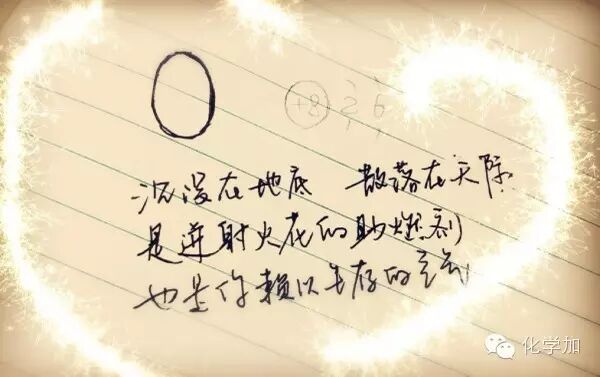 O +8 2 6
沉浸在地底 散落在天际
是迸射火花的助燃剂
也是你赖以生存的空气
化学加